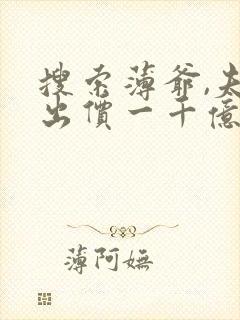 搜索薄爺,夫
出價一千億
薄阿嫵